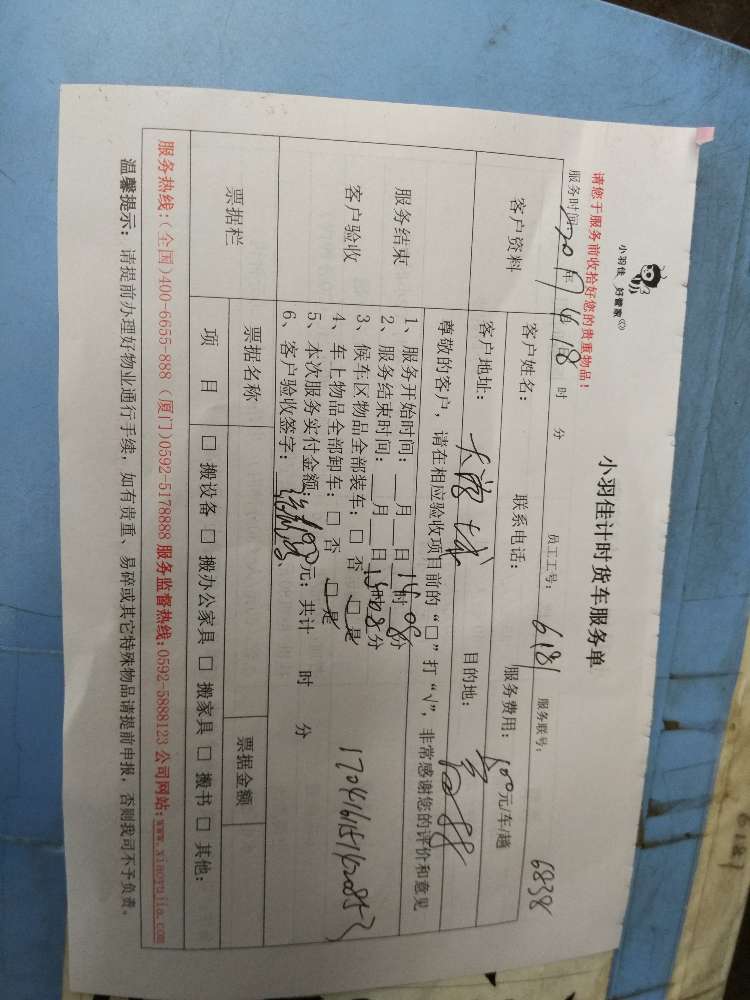 小羽佳 好管家
小羽佳计时货车服务单
6838
请您于服务前收拾好您的贵重物品！
服务时间: 2017 年 4 月 18 时 分 员工工号: 6181 服务联号:
客户资料
客户姓名: 联系电话: 服务费用: 元/车/趟
客户地址: 目的地:
服务结束
客户验收
尊敬的客户，请在相应验收项目前的“□”打“√”，非常感谢您的评价和意见
1、服务开始时间: 月 日 14 时 08 分
2、服务结束时间: 月 日 15 时 08 分
3、候车区物品全部装车: □ 否 □ 是
4、车上物品全部卸车: □ 否 □ 是
5、本次服务实付金额: 元; 共计 时 分
6、客户验收签字:
票据栏
票据名称 票据金额
项 目 □ 搬设备 □ 搬办公家具 □ 搬家具 □ 搬书 □ 其他:
服务热线:(全国)400-6655-888 (厦门)0592-5178888 服务监督热线:0592-5888123 公司网站:www.xiaoyujia.com
温馨提示: 请提前办理好物业通行手续，如有贵重、易碎或其它特殊物品请提前申报，否则我司不予负责。